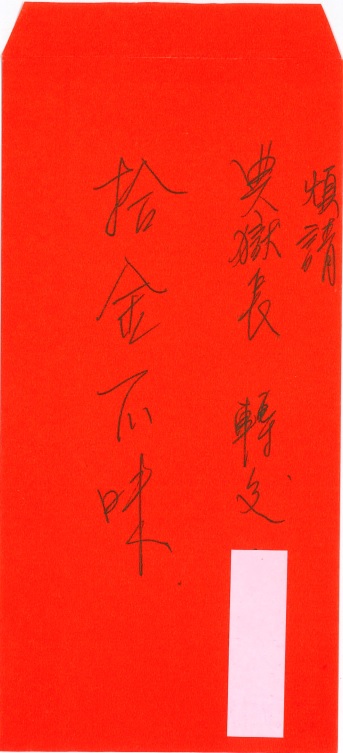 煩請
典獄長 轉交
拾金不昧